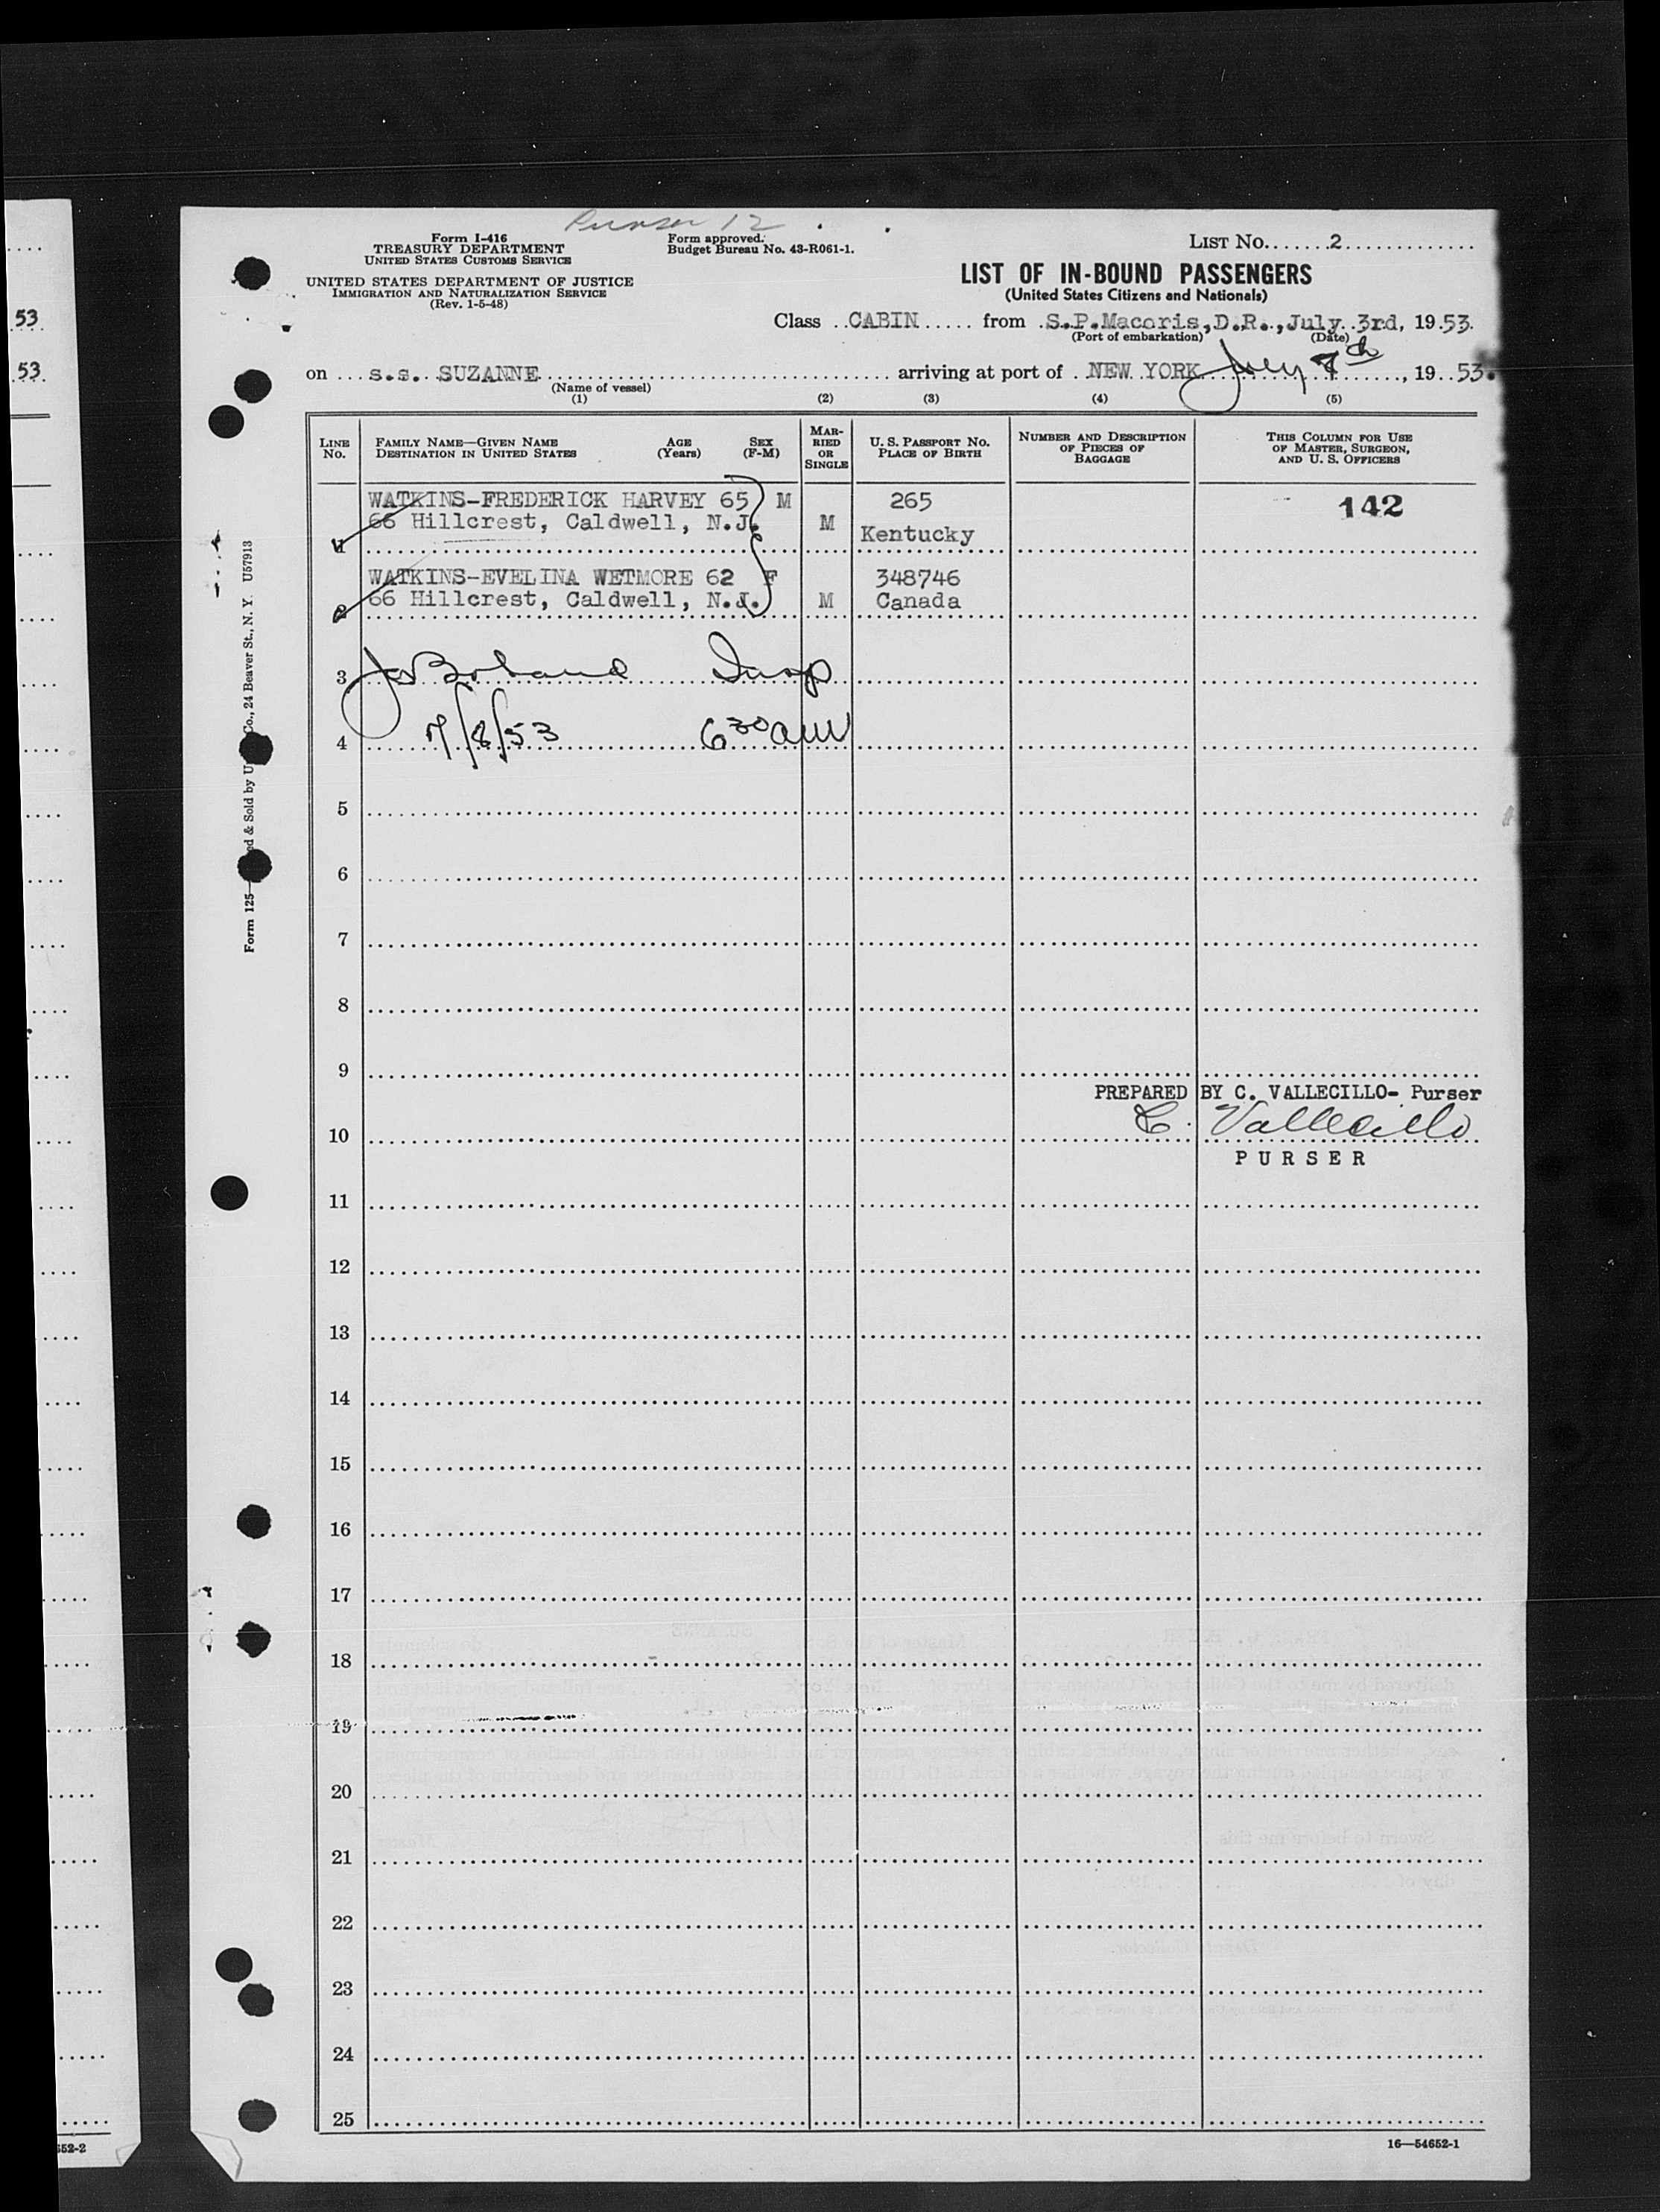 Form I-416
TREASURY DEPARTMENT
UNITED STATES CUSTOMS SERVICE
UNITED STATES DEPARTMENT OF JUSTICE
IMMIGRATION AND NATURALIZATION SERVICE
(Rev. 1-5-48)
Form approved.
Budget Bureau No. 43-R061-1.
LIST No. 2
LIST OF IN-BOUND PASSENGERS
(United States Citizens and Nationals)
Class CABIN from S.P.Macoris, D.R., July 3rd, 1953.
(Port of embarkation) (Date)
on s.s. SUZANNE arriving at port of NEW YORK July 8th, 1953.
(Name of vessel)
(1) (2) (3) (4) (5)
LINE No.
FAMILY NAME—GIVEN NAME AGE SEX
DESTINATION IN UNITED STATES (Years) (F-M)
MARRIED OR SINGLE
U. S. PASSPORT NO.
PLACE OF BIRTH
NUMBER AND DESCRIPTION
OF PIECES OF
BAGGAGE
THIS COLUMN FOR USE
OF MASTER, SURGEON,
AND U. S. OFFICERS
WATKINS-FREDERICK HARVEY 65 M 265 142
1 66 Hillcrest, Caldwell, N.J. M Kentucky
WATKINS-EVELINA WETMORE 62 F 348746
2 66 Hillcrest, Caldwell, N.J. M Canada
3 Insp
4 7/8/53 6 30 am
5
6
7
8
9
PREPARED BY C. VALLECILLO- Purser
10 C. Vallecillo
PURSER
11
12
13
14
15
16
17
18
19
20
21
22
23
24
25
16—54652-1
Co., 24 Beaver St., N. Y. U57913
Form 125
ed & Sold by U
53
53
652-2